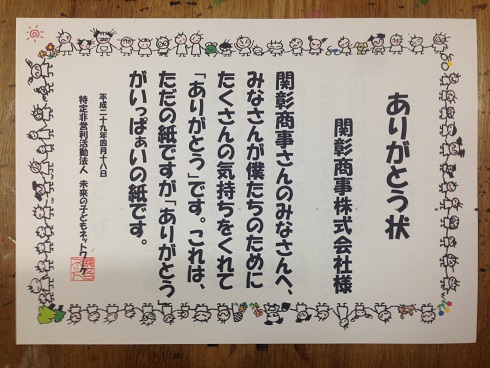 ありがとう状
関彰商事株式会社様
関彰商事さんのみなさんへ、
みなさんが僕たちのために
たくさんの気持ちをくれて
「ありがとう」です。これは、
ただの紙ですが「ありがとう」
がいっぱぁいの紙です。
平成二十九年四月十八日
特定非営利活動法人 未来の子どもネットワーク